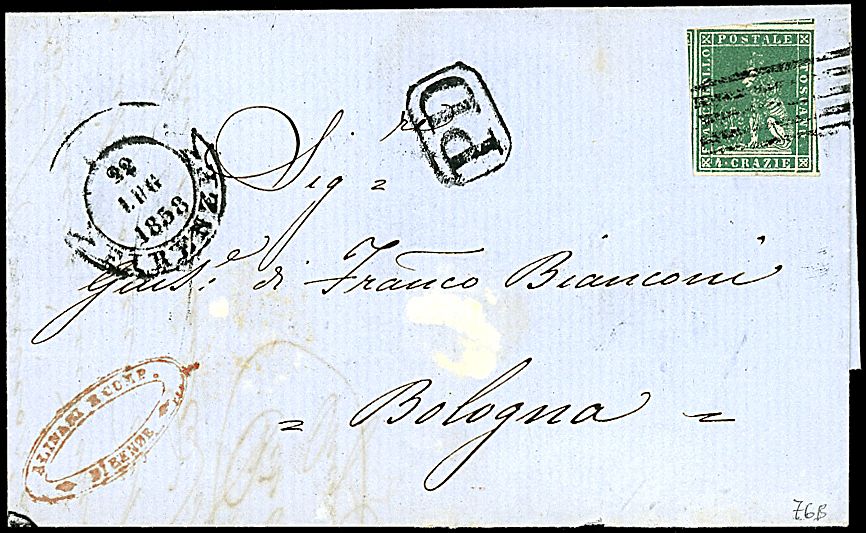 FRANCOBOLLO POSTALE TOSCANO
4 CRAZIE
PD
22
LUG
1858
FIRENZE
Sig.ri
Giuse. di Franco Bianconi
= Bologna =
ALINARI E COMP.
FIRENZE
76B